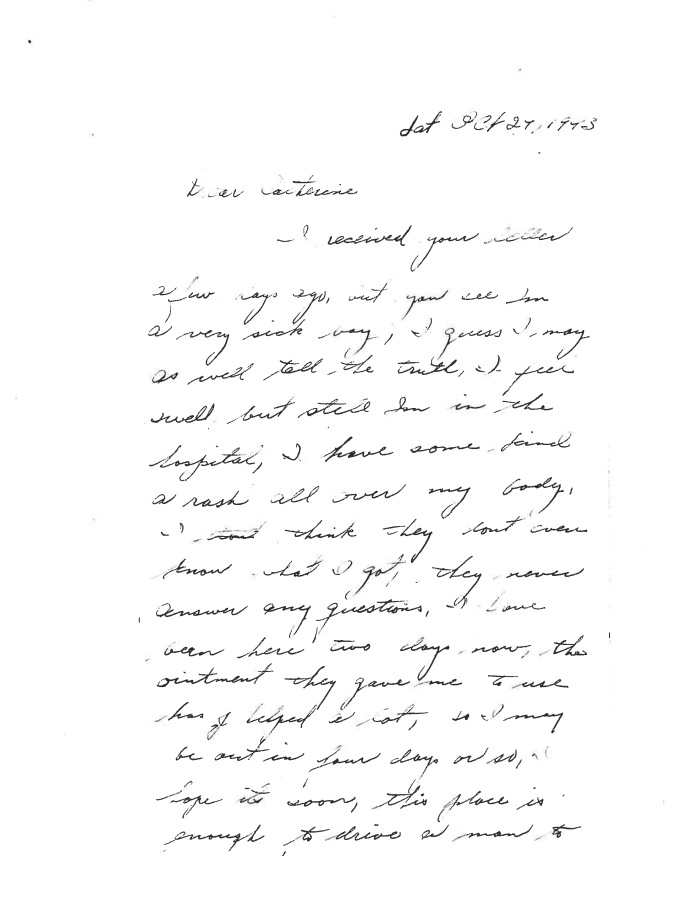 Sat Oct 27, 1943
Dear Catherine
– I received your letter
a few days ago, but you see Im
a very sick boy, I guess I may
as well tell the truth, I feel
swell but still Im in the
hospital, I have some kind
a rash all over my body,
I think they dont even
know what I got, they never
answer any questions, I have
been here two days now, the
ointment they gave me to use
has helped a lot, so I may
be out in four days or so, I
hope its soon, this place is
enough to drive a man to